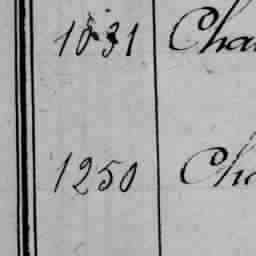 1031 Cha
1250 Cha